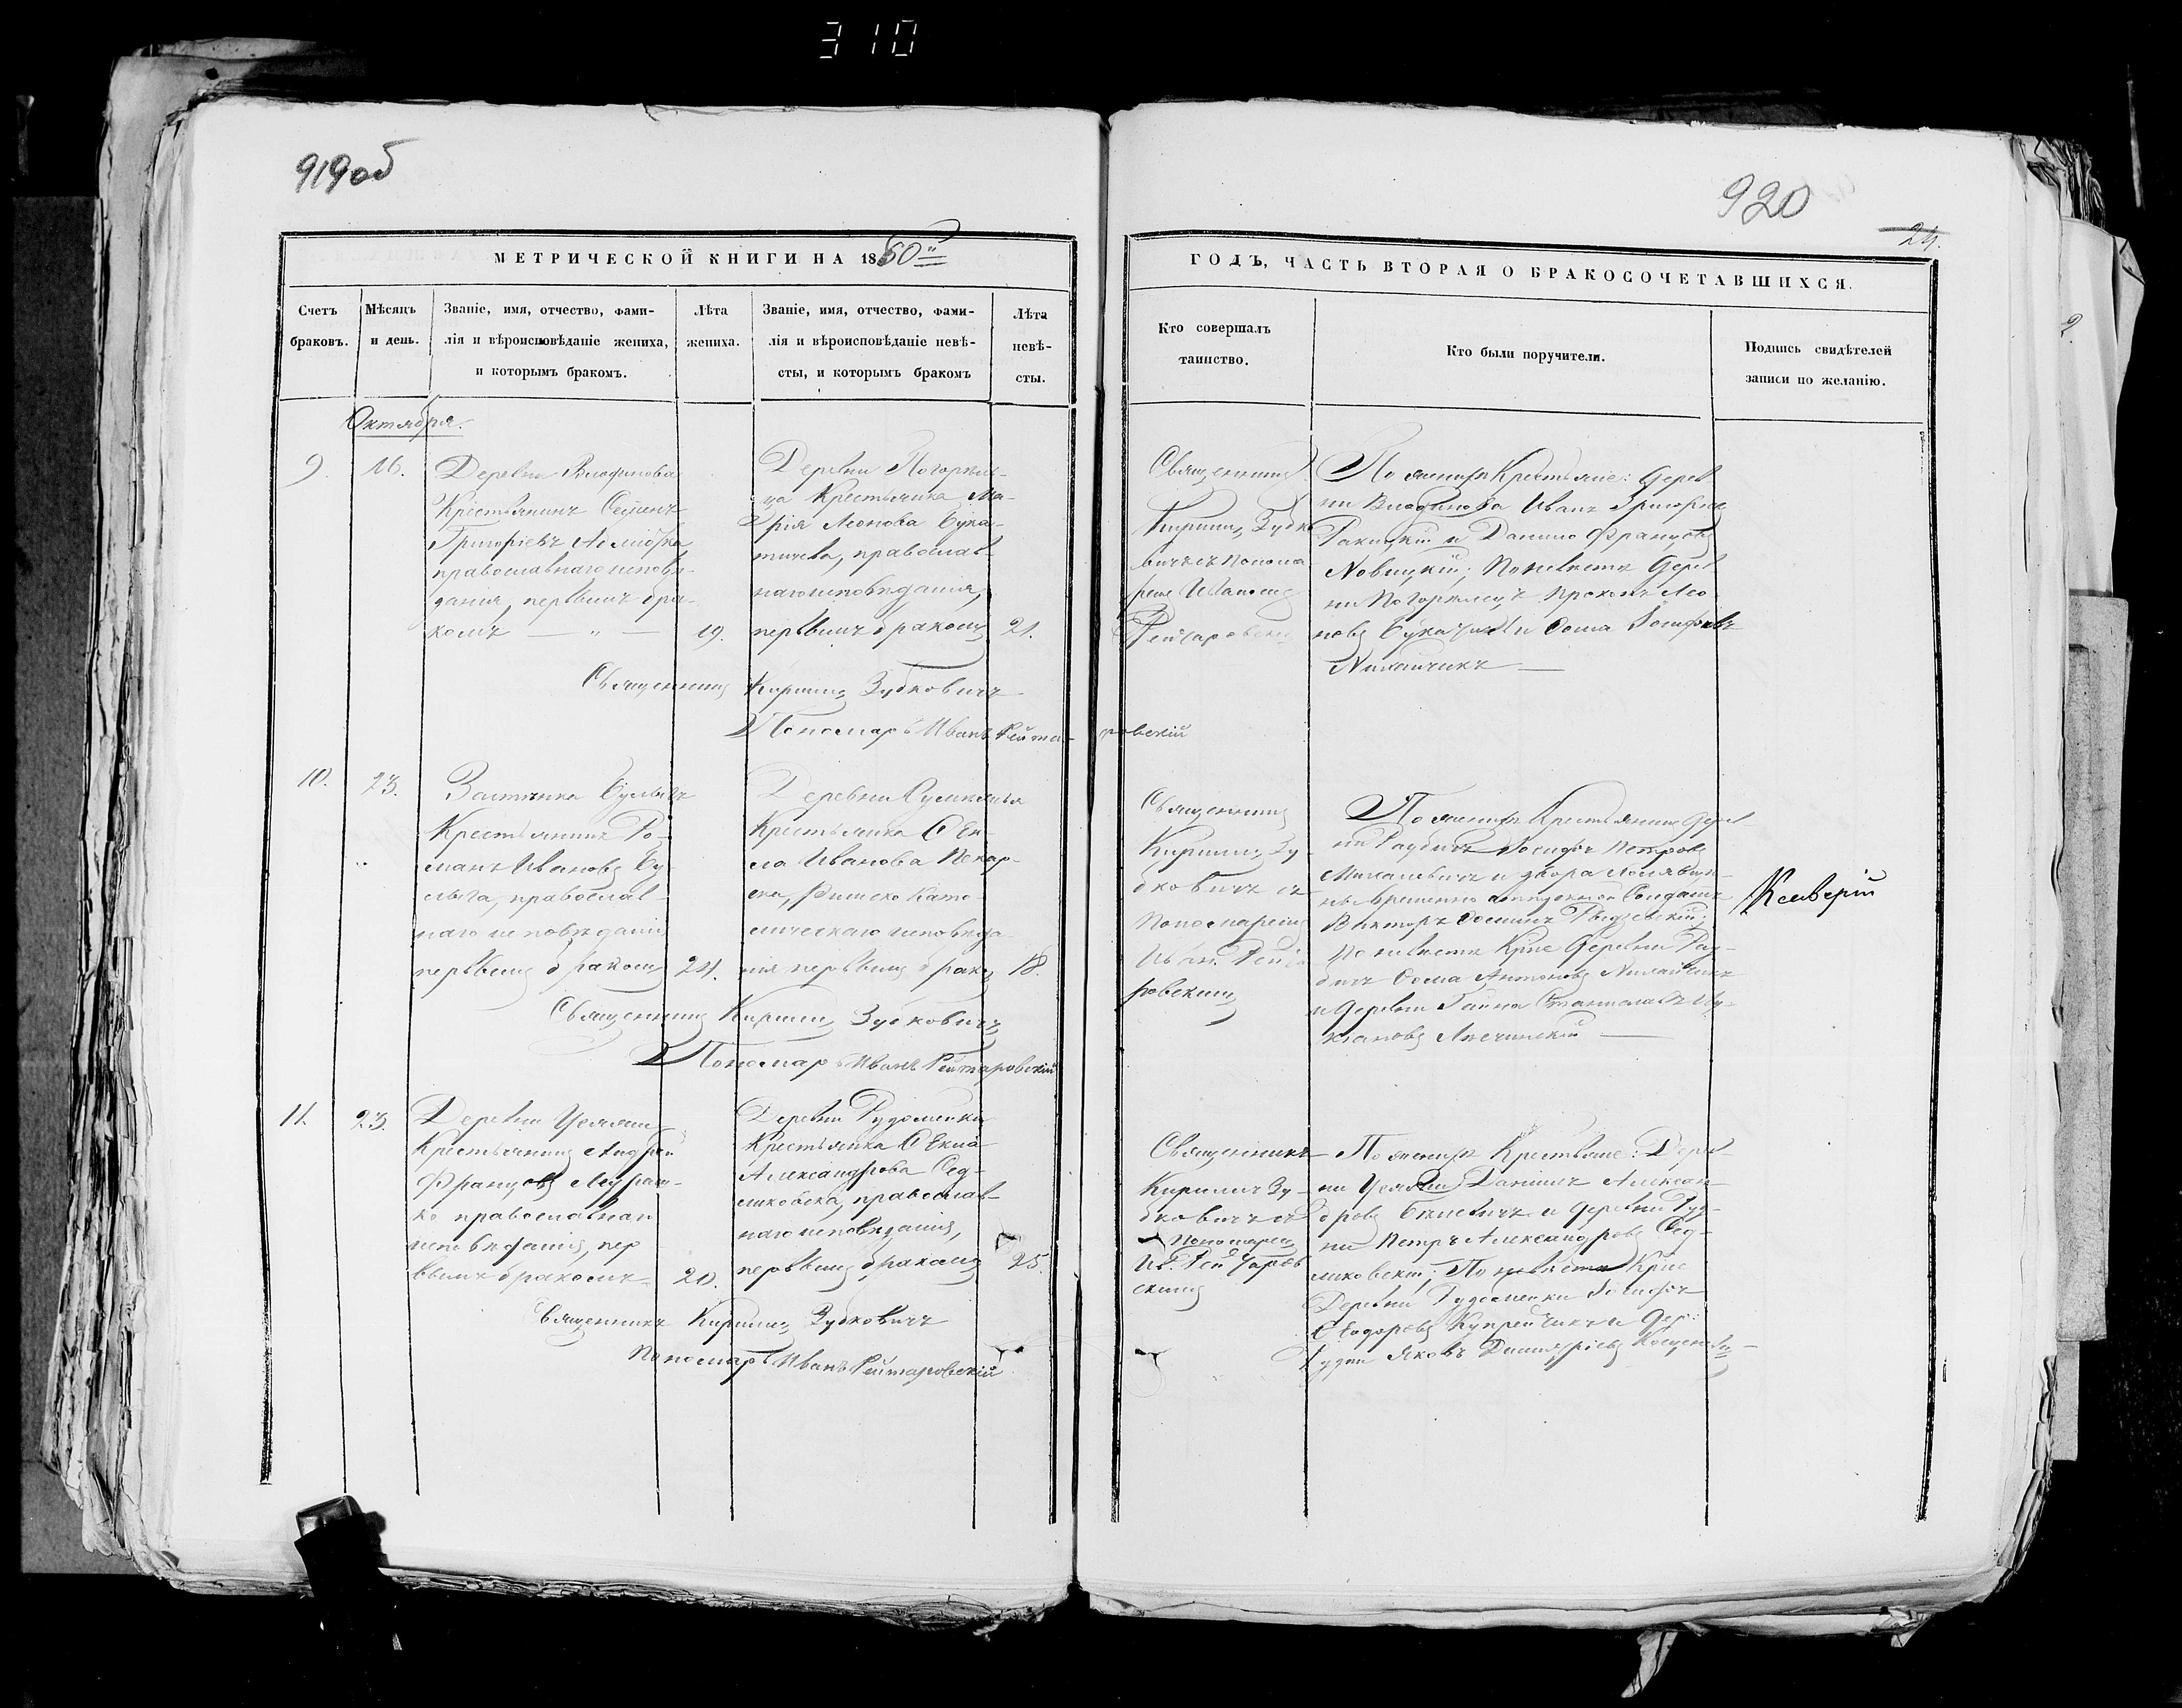 310
919 об
920
24.
МЕТРИЧЕСКОЙ КНИГИ НА 1860
ГОДЪ, ЧАСТЬ ВТОРАЯ О БРАКОСОЧЕТАВШИХСЯ.
Счетъ
браковъ.
Мѣсяцъ
и день.
Званіе, имя, отчество, фами-
лія и вѣроисповѣданіе жениха,
и которымъ бракомъ.
Лѣта
жениха.
Званіе, имя, отчество, фами-
лія и вѣроисповѣданіе невѣ-
сты, и которымъ бракомъ
Лѣта
невѣ-
сты.
Кто совершалъ
таинство.
Кто были поручители.
Подпись свидѣтелей
записи по желанію.
Октября.
9.
16.
Деревни
Крестьянинъ Семенъ
Григоріевъ
православнаго исповѣ-
данія, первымъ бра-
комъ — „ —
19.
Деревни Погорѣль-
ца Крестьянка Ма-
рія Леонова Бука-
тичева, православ-
наго исповѣданія,
первымъ бракомъ
21.
Священникъ
Кирилъ Зубко
вичъ съ понома
ремъ Иваномъ
По женихѣ Крестьяне: дерев
ни Иванъ Григорьевъ
Ракицкій и Данило Францовъ
Новицкій; По невѣстѣ дерев
ни Погорѣлецъ Леo
новъ и Ѳома Іосифовъ
Священникъ Кирилъ Зубковичъ
Пономарь Иванъ Рейта-
ровскій
10.
23.
Застѣнка
Крестьянинъ Ро-
манъ Ивановъ Бу-
лыга, православ-
наго исповѣданія
первымъ бракомъ
24.
Деревни
Крестьянка Ѳек-
ла Иванова Пекар-
ска, Римско Като-
лическаго исповѣда-
нія первымъ бракомъ
18.
Священникъ
Кирилъ Зу-
бковичъ съ
Пономаремъ
Иван. Рейта
ровскимъ
По женихѣ Крестьянинъ дерев
ни Раубичъ Іосифъ Петровъ
Михалевичъ и двора
временно отпускной Солдатъ
Викторъ
По невѣстѣ Кр-не деревни Рау-
бичъ Ѳома Антоновъ
и деревни Гайна Станиславъ Лу-
кіановъ
Ксаверій
Священникъ Кирилъ Зубковичъ
Пономарь Иванъ Рейтаровскій
11.
23.
Деревни
Крестьянинъ Андрей
Францовъ
ко православнаго
исповѣданія, пер
вымъ бракомъ
20.
Деревни Рудоменки
Крестьянка Ѳекла
Александрова Сед-
ликовска, православ-
наго исповѣданія,
первымъ бракомъ
25.
Священникъ
Кирилъ Зу-
бковичъ съ
Пономарем
Ив. Рейтаров
скимъ
По женихѣ Крестьяне: Дерев-
ни Даніилъ Алексан-
дровъ и деревни Руд-
ни Петръ Александровъ Сед-
ликовскій; По невѣстѣ Кр-не
Деревни Рудоменки Іосифъ
Ѳеодоровъ Купрейчикъ и дер:
Рудни Яковъ Дмитріевъ
Священникъ Кирилъ Зубковичъ
Пономарь Иванъ Рейтаровскій